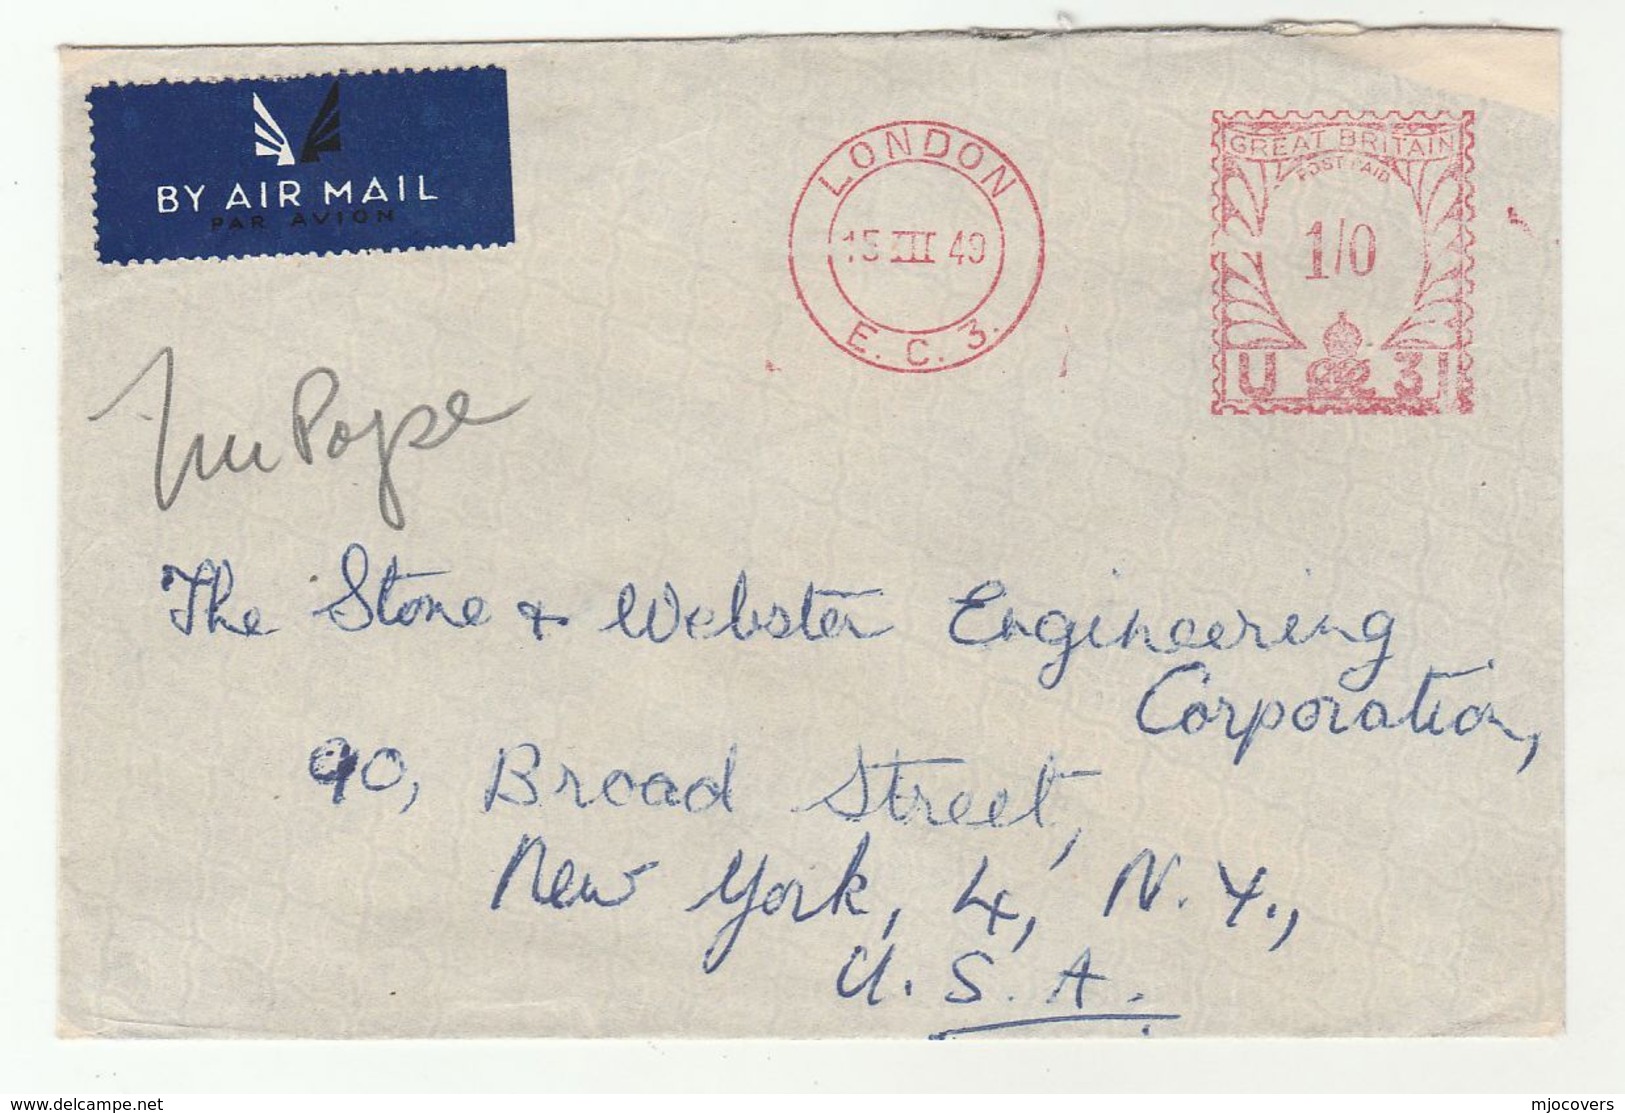 BY AIR MAIL
PAR AVION
LONDON
15 III 49
E. C. 3.
GREAT BRITAIN
POST PAID
1/0
U 31
Mr Pope
The Stone & Webster Engineering
Corporation,
90, Broad Street,
New York, 4, N. Y.,
U. S. A.
delcampe.net
mjocovers